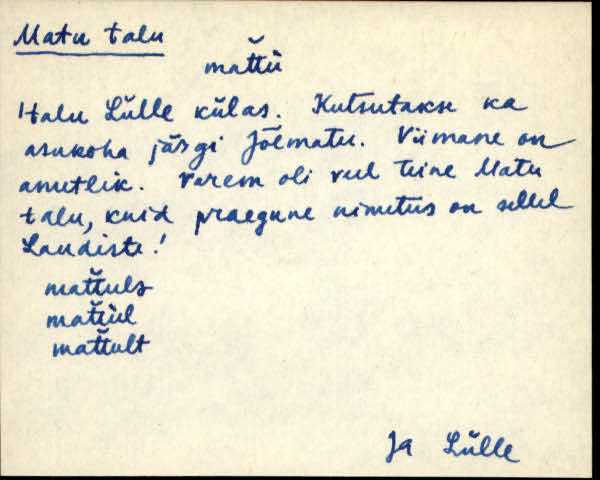 Matu talu
mat̆tü
Talu Lülle külas. Kutsutakse ka
asukoha järgi Jõematu. Viimane on
ametlik. Varem oli veel teine Matu
talu, kuid praegune nimetus on sellel
Laudiste!
mat̆tuls
mat̆tül
mat̆tult
Ja Lülle